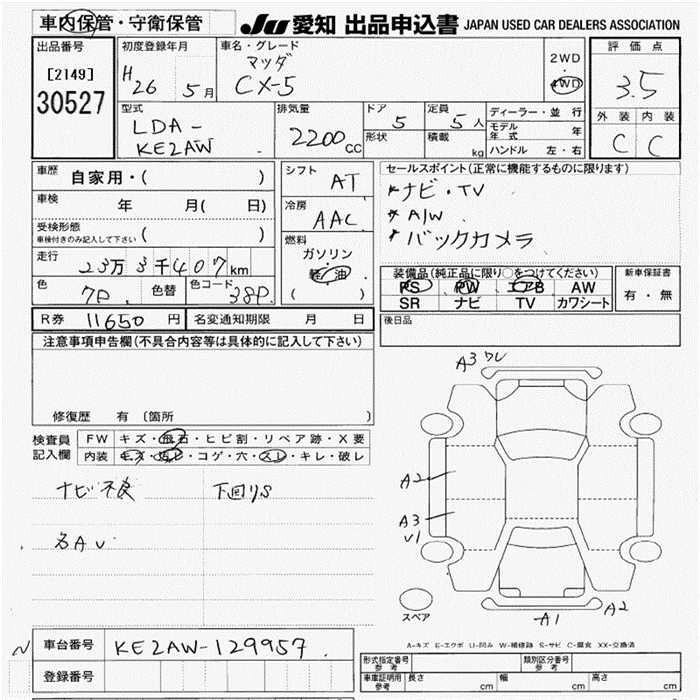 車内保管・守衛保管
JU 愛知 出品申込書 JAPAN USED CAR DEALERS ASSOCIATION
出品番号
[2149]
30527
初度登録年月
H26 5月
車名・グレード
マツダ
CX-5
2WD
・
4WD
評価点
3.5
外装 内装
C C
型式
LDA-
KE2AW
排気量
2200cc
ドア
5
形状
定員
5人
積載
kg
ディーラー・並行
モデル年式 年
ハンドル 左・右
車歴
自家用・( )
車検
年 月( 日)
受検形態
車検付きのみ記入して下さい ( )
走行
23万3千407km
色
7P
色替
色コード
38P
シフト
AT
冷房
AAC
燃料
ガソリン
・
軽油
( )
セールスポイント(正常に機能するものに限ります)
ナビ・TV
A/W
バックカメラ
装備品(純正品に限り○をつけてください)
PS PW エアB AW
SR ナビ TV カワシート
新車保証書
有・無
R券 11650円 名変通知期限 月 日
後日品
注意事項申告欄(不具合内容等は具体的に記入して下さい)
修復歴 有〔箇所 〕
検査員
記入欄
FW キズ・飛石・ヒビ割・リペア跡・X要
内装 キズ・汚レ・コゲ・穴・スレ・キレ・破レ
ナビ不良 下回りS
AU
A3 ワレ
A2
A3
U1
A1
A2
スペア
A-キズ E-エクボ U-凹み W-補修跡 S-サビ C-腐食 XX-交換済
車台番号 KE2AW-129957
登録番号
形式指定番号
参考
類別区分番号
参考
車庫証明用
参考
長さ cm 幅 cm 高さ cm